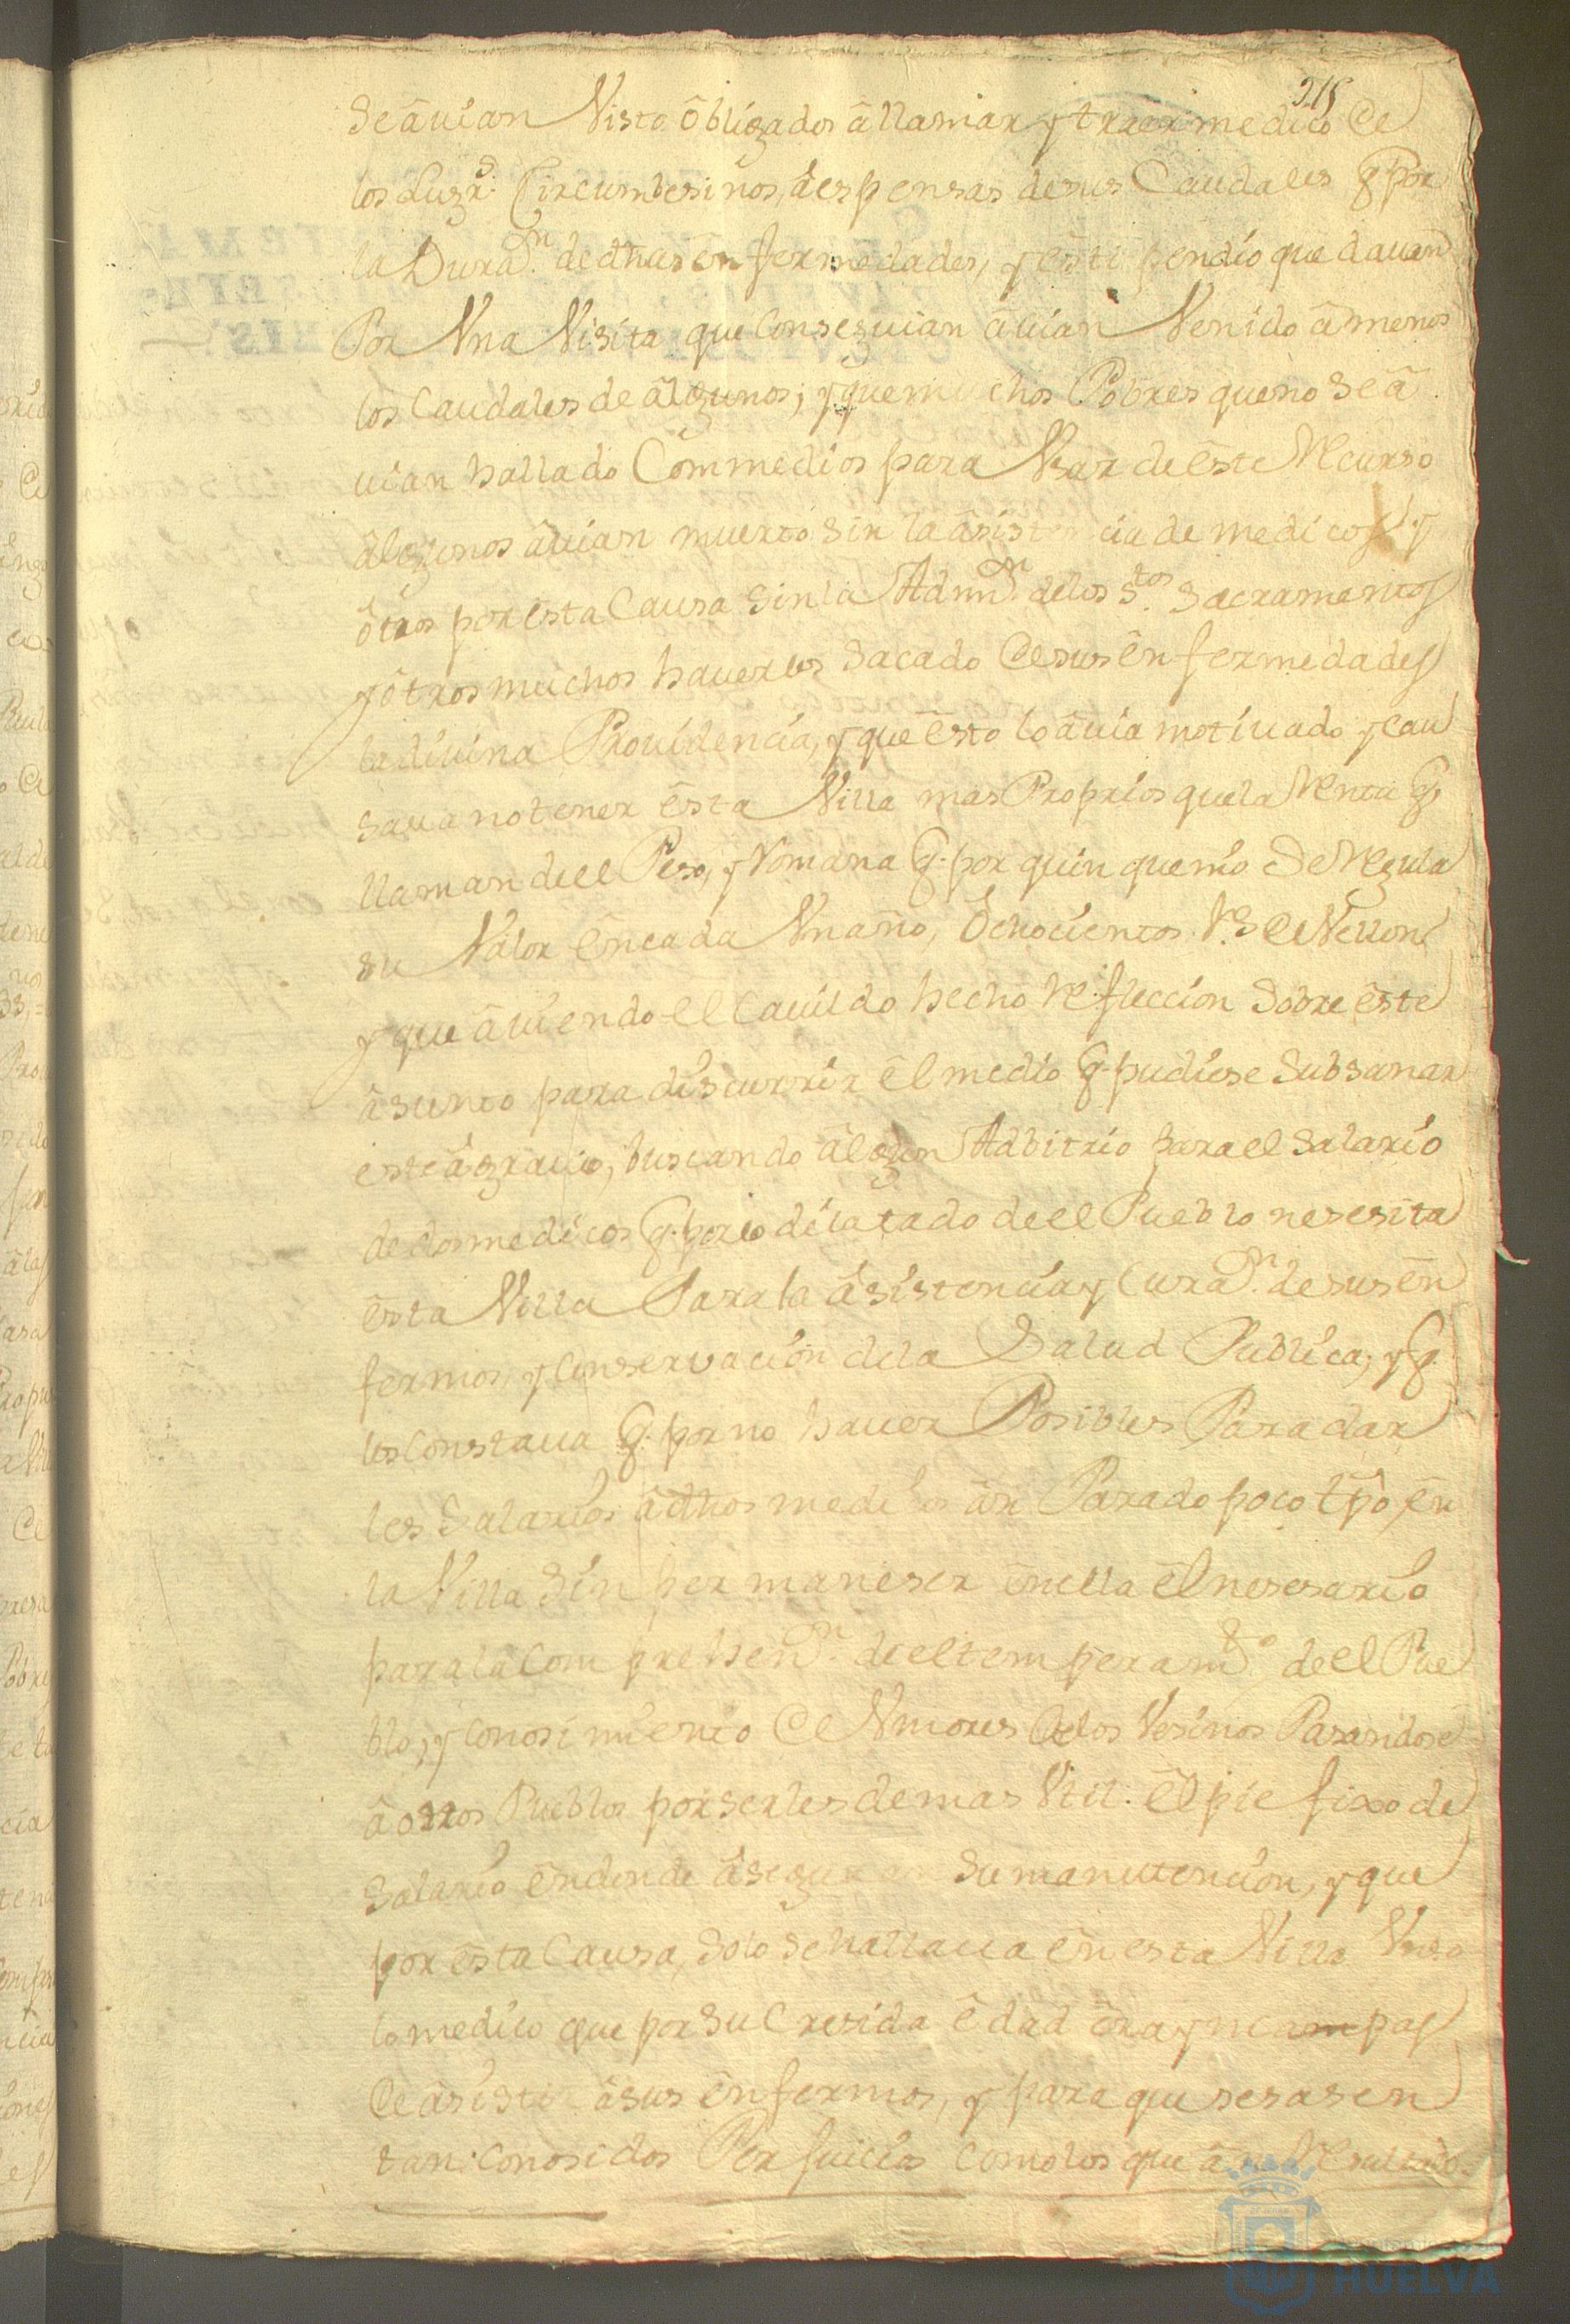 215
se âuian Visto ôbligados âllamar y traer medico de
los Lugs. Circumbesinos, âespensas desus Caudales q por
la Duraon. de dhas enfermedades, y êstipendio que dauan
Por Vna Visita que Conseguian âuian Venido âmenos
los Caudales de âlgunos; y que muchos Pobres que no se â
uian hallado Com medios para Vsar de êste Recurso
âlgunos âuian muerto sin la âsistencia de medicos y
ôtros por êsta Causa sin la Admn. delos Stos. Sacramentos
y ôtros muchos hauerles sacado de sus ênfermedades
la diuina Prouidencia, y que êsto lo âuia motiuado y cau
saua no tener êsta Villa mas Proprios que la Renta q.
llaman deel Peso, y Romana q. por quinquenio se Regula
su Valor ên cada Vn año, ôchocientos Rs. de Vellon
y que âuiendo el Cauildo hecho Refleccion sobre êste
âsunto para discurrir êl medio q. pudiese subsanar
este âgrauio, buscando âlgun Adbitrio para el salario
de dos medicos q. por lo dilatado deel Pueblo nesesita
êsta Villa Para la âsistencia y Curaon. de sus ên
fermos, y Conservacion dela Salud Publica; y q.
les Constaua q. por no hauer Posibles Para dar
les Salarios âdhos medicos ân Parado poco tpo, ên
la Villa sin permaneser ên ella êl nesesario
para la Comprehenon. de el temperamto. de el Pue
blo, y Conosimiento de Vmores delos Vesinos Pasandose
â otros Pueblos por serles de mas Vtil êl pie fixo de
Salario ên donde âseguran su manutencion, y que
por êsta Causa, solo se hallaua ên esta Villa Vn so
lo medico que por su Cresida êdad êra yncampas
de âsistir âsus ênfermos, y para que sesasen
tan Conosidos Perjuicios como los que ân Resultado
HUELVA